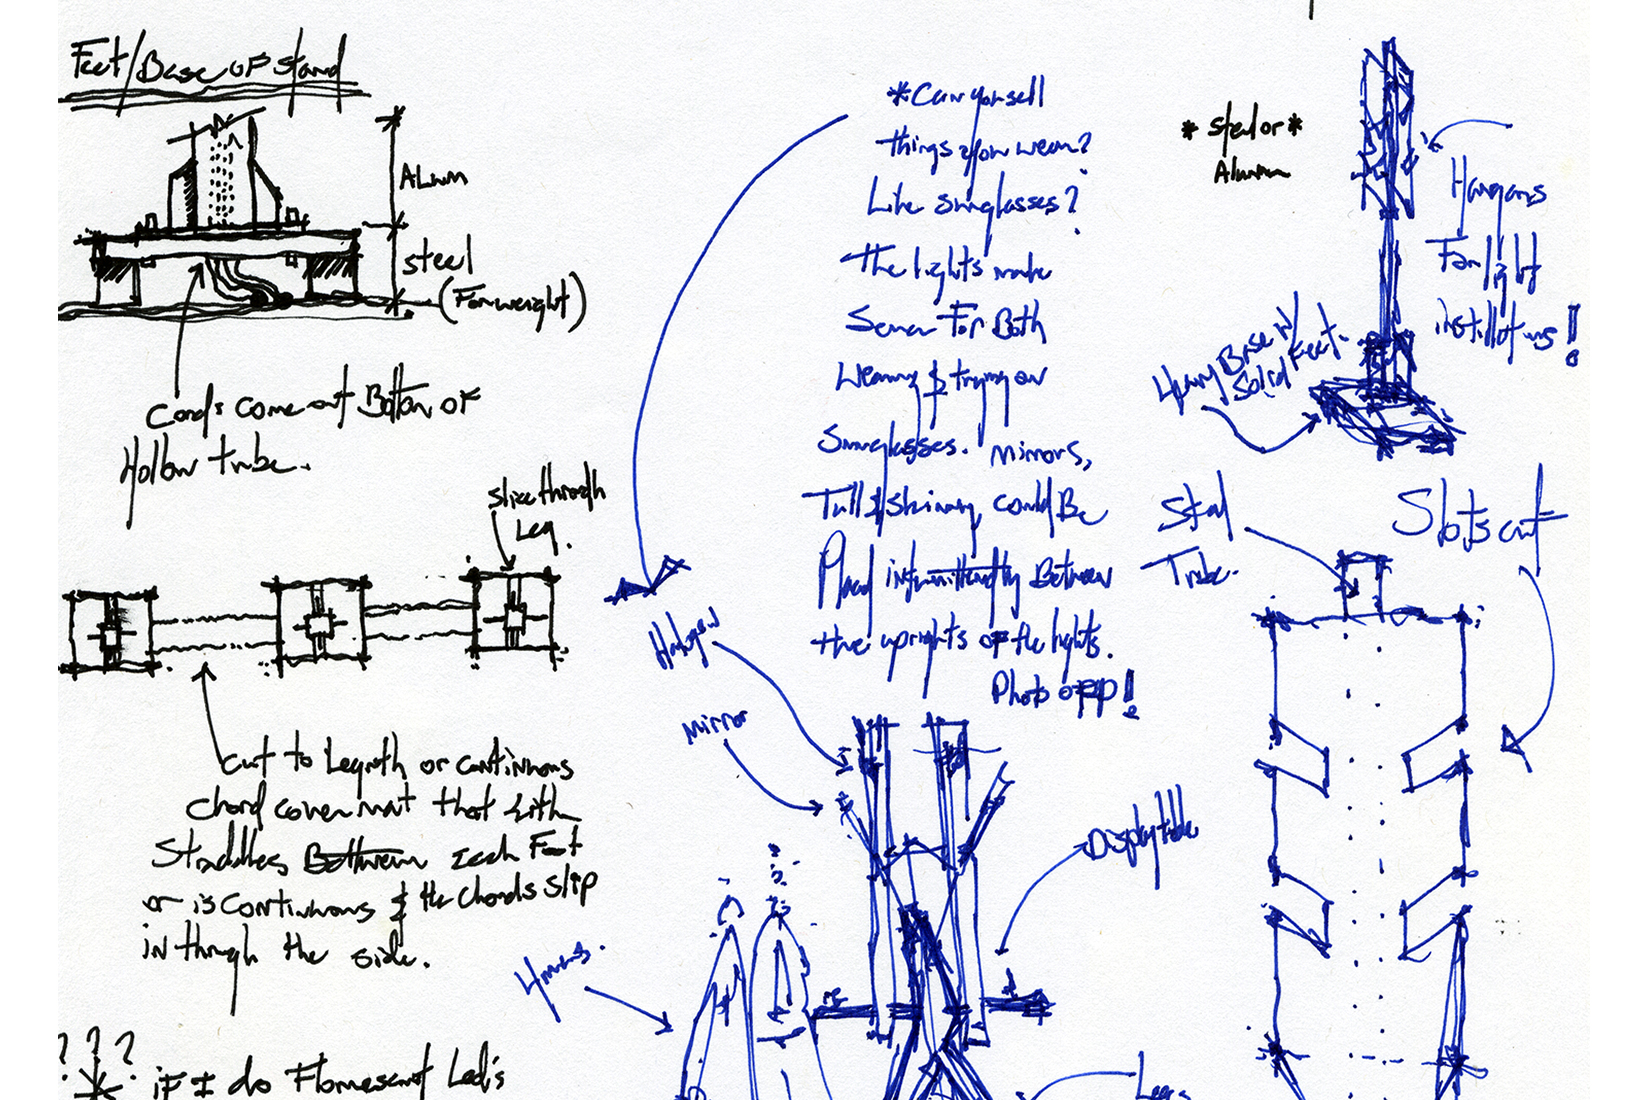 Feet/Base of stand
Alum
steel
(For weight)
Cords come out Bottom of
Hollow tube.
slice through
Leg.
cut to Length or continuous
chord cover mat that
Straddles Between Each Foot
or is continuous & the chords slip
in through the side.
???
* if I do Florescent Led's
*Can you sell
things you wear?
Like sunglasses?
the lights make
Sense For Both
Wearing & trying on
Sunglasses. Mirrors,
Tall & skinny, could Be
Placed intermittently Between
the uprights of the lights.
Photo opp!
Halogen
mirror
Display table
Legs
*steel or*
Alumn
Hangars
For light
instillations!
Heavy Base w/
Solid Feet.
Steel
Tube.
Slots cut